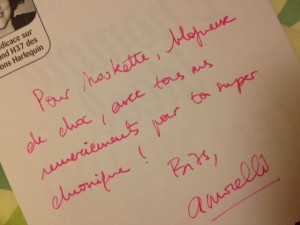 édicace sur
and H37 des
ons Harlequin
Pour Noukette, blogueuse
de choc, avec tous mes
remerciements pour ta super
chronique !
Bizs,
amorelli